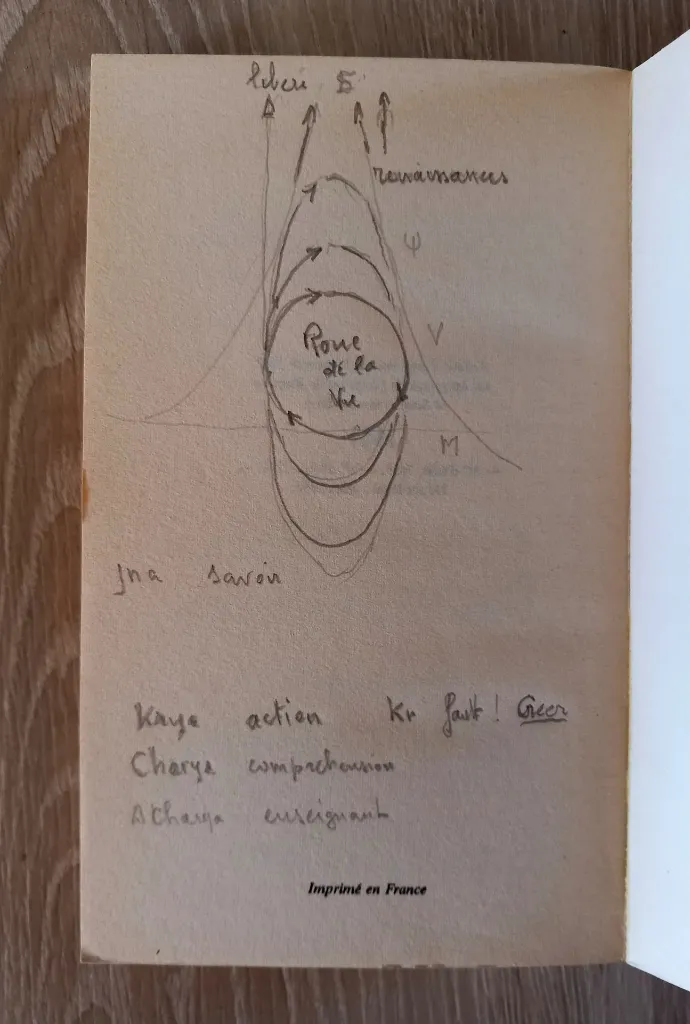 liberé
renaissances
φ
Roue
de la
Vie
V
M
Jna savoir
Kraya action Kr fait! Creer
Charya comprehension
Acharya enseignant
Imprimé en France